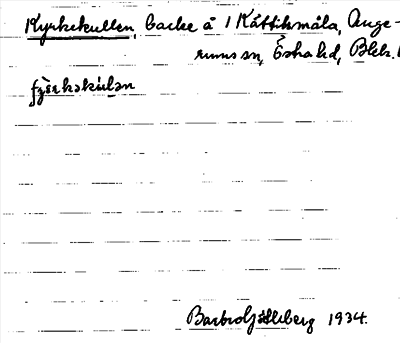 Kyrkekullen, backe å 1 Kättilsmåla, Auge-
rums sn, Östra hd, Blek.
Barbro Gjälleberg 1934.